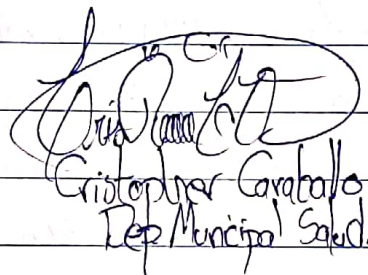 Cristopher Caraballo
Dep Municipal Salud.